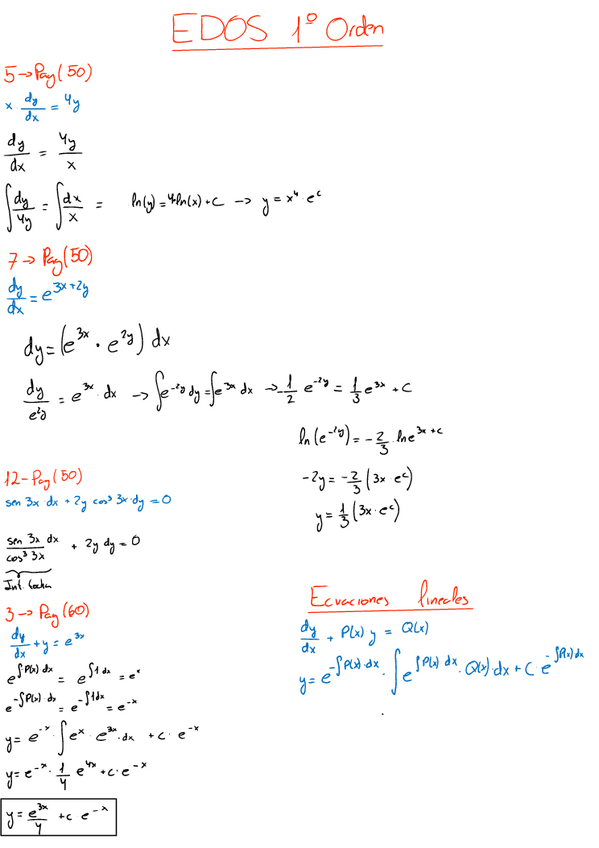 EDOS 1º Orden
5→Pag(50)
x dy/dx = 4y
dy/dx = 4y/x
∫dy/4y = ∫dx/x = ln(y)=4ln(x)+C → y = x⁴·e^c
7→Pag(50)
dy/dx = e^(3x+2y)
dy=(e^(3x) · e^(2y)) dx
dy/e^(2y) = e^(3x)·dx → ∫e^(-2y) dy=∫e^(3x) dx → -1/2 e^(-2y) = 1/3 e^(3x) + C
ln(e^(-2y)) = -2/3 · ln e^(3x+c)
-2y = -2/3 (3x·e^c)
y = 1/3 (3x·e^c)
12-Pag(50)
sen 3x dx + 2y cos³ 3x·dy = 0
sen 3x dx/cos³ 3x + 2y dy = 0
Int. hecha
3→Pag(60)
dy/dx + y = e^(3x)
e^(∫P(x) dx) = e^(∫1 dx) = e^x
e^(-∫P(x) dx) = e^(-∫1dx) = e^(-x)
y = e^(-x) · ∫e^x · e^(3x)·dx + c · e^(-x)
y = e^(-x) · 1/4 e^(4x) + c·e^(-x)
y = e^(3x)/4 + c e^(-x)
Ecuaciones lineales
dy/dx + P(x) y = Q(x)
y = e^(-∫P(x)·dx) · ∫e^(∫P(x) dx) · Q(x)·dx + C e^(-∫P(x)dx)